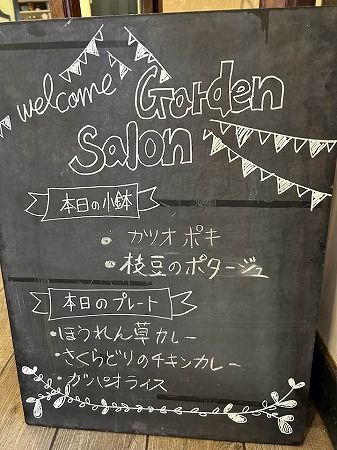 welcome Garden
Salon
本日の小鉢
・カツオ ポキ
・枝豆のポタージュ
本日のプレート
・ほうれん草カレー
・さくらどりのチキンカレー
・ガパオライス